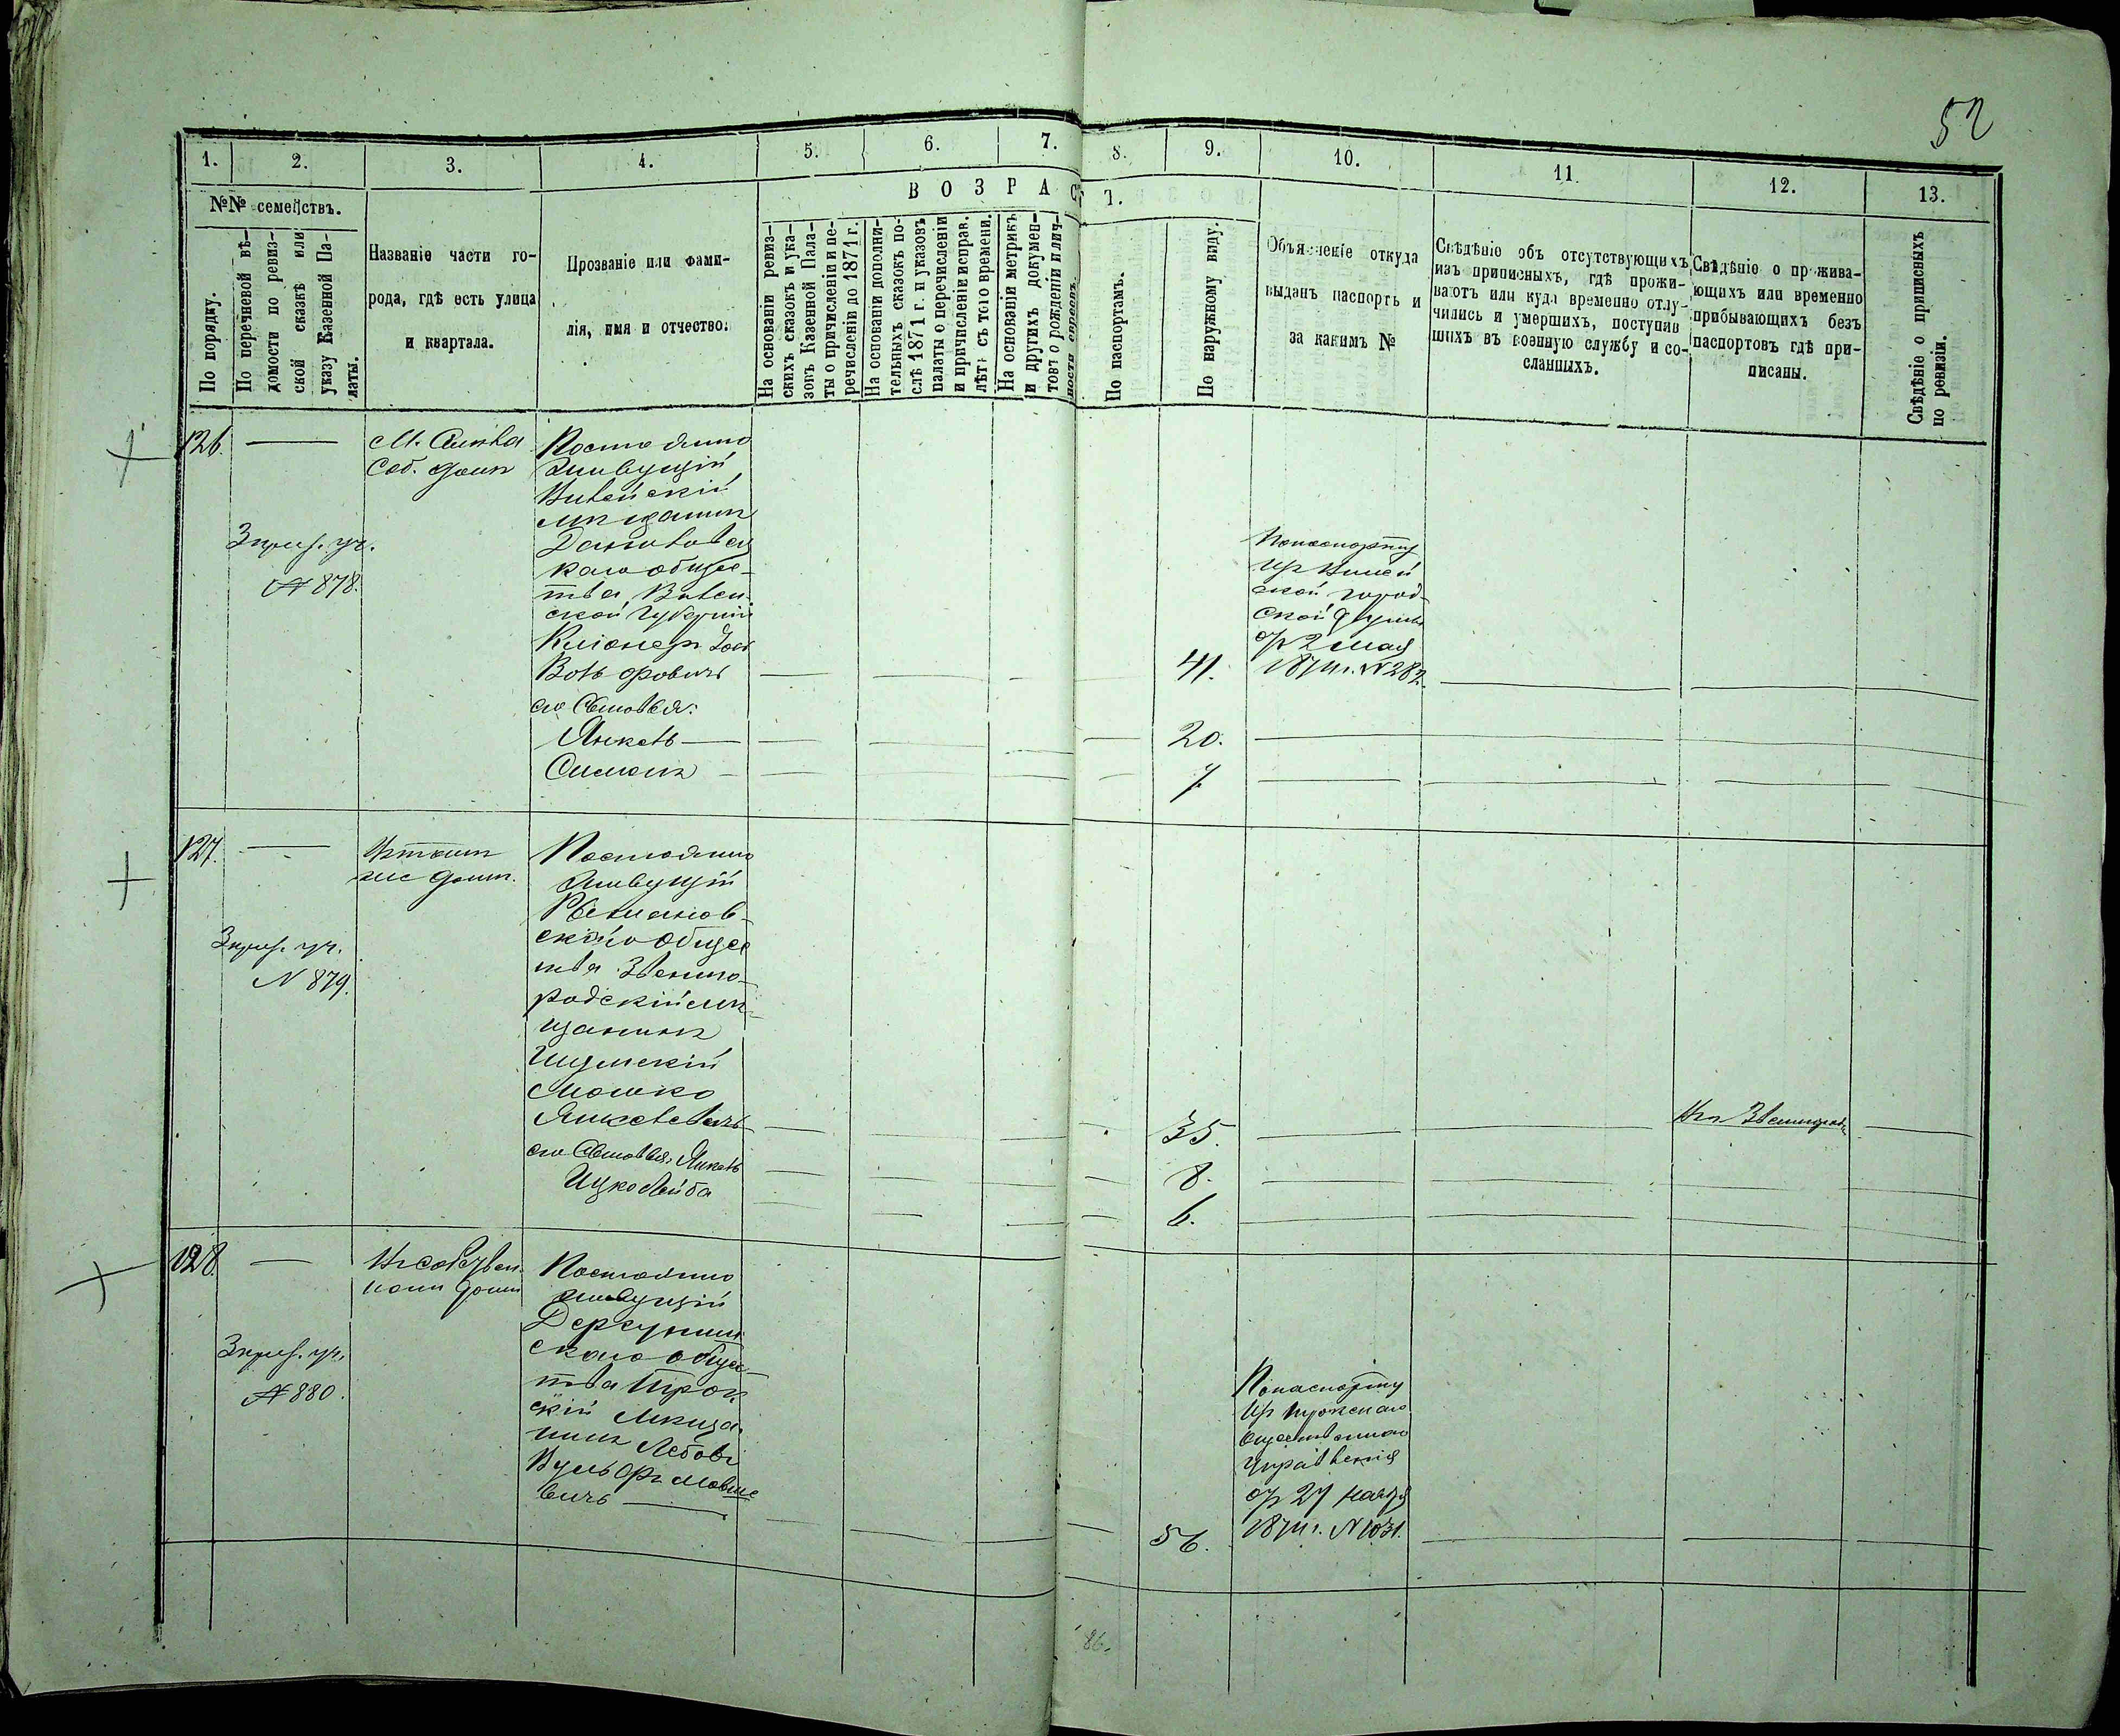 52
1. 2. 3. 4. 5. 6. 7. 8. 9. 10. 11. 12. 13.
№№ семействъ.
По порядку.
По перечневой вѣ-
домости по ревиз-
ской сказкѣ или
указу Казенной Па-
латы.
Названіе части го-
рода, гдѣ есть улица
и квартала.
Прозваніе или фами-
лія, имя и отчество.
ВОЗРАСТ.
На основаніи ревиз-
скихъ сказокъ и ука-
зовъ Казенной Пала-
ты о причисленіи и пе-
речисленіи до 1871 г.
На основаніи дополни-
тельныхъ сказокъ по-
слѣ 1871 г. и указовъ
палаты о перечисленіи
и причисленіе исправ.
лѣтъ съ того времени.
На основаніи метрикъ
и другихъ докумен-
товъ о рожденіи и лич-
ности евреевъ.
По паспортамъ.
По наружному виду.
Объясненіе откуда
выданъ паспортъ и
за какимъ №
Свѣдѣніе объ отсутствующихъ
изъ приписныхъ, гдѣ прожи-
ваютъ или куда временно отлу-
чились и умершихъ, поступив
шихъ въ военную службу и со-
сланныхъ.
Свѣдѣніе о прожива-
ющихъ или временно
прибывающихъ безъ
паспортовъ гдѣ при-
писаны.
Свѣдѣніе о приписныхъ
по ревизіи.
126.
Соб. домъ
3 приз. уч.
№ 878.
Постоянно
живущій
мѣщанинъ
каго общес-
тва Вилен
ской Губерніи
Вольфовичъ
его Сыновья:
Янкель
Симонъ
41.
20.
7.
По паспорту
изъ
ской город-
ской Думы
отъ 2 Мая
1874 г. № 282.
127.
домѣ.
3 приз. уч.
№ 879.
Постоянно
живущій
скаго общес
тва Звениго-
родскій мѣ-
щанинъ
Шумскій
Мошко
Янкелевичъ
его Сыновья: Янкель
Ицко Лейба
35.
8.
6.
Изъ
128.
Въ собствен
номъ домѣ
3 приз. уч.
№ 880.
Постоянно
живущій
скаго общес-
тва Трок
скій Мѣща-
нинъ
Вульфъ Мовше
вичъ
56.
По паспорту
изъ Трокскаго
Управленія
отъ 27 Марта
1874 г. № 1031.
86.